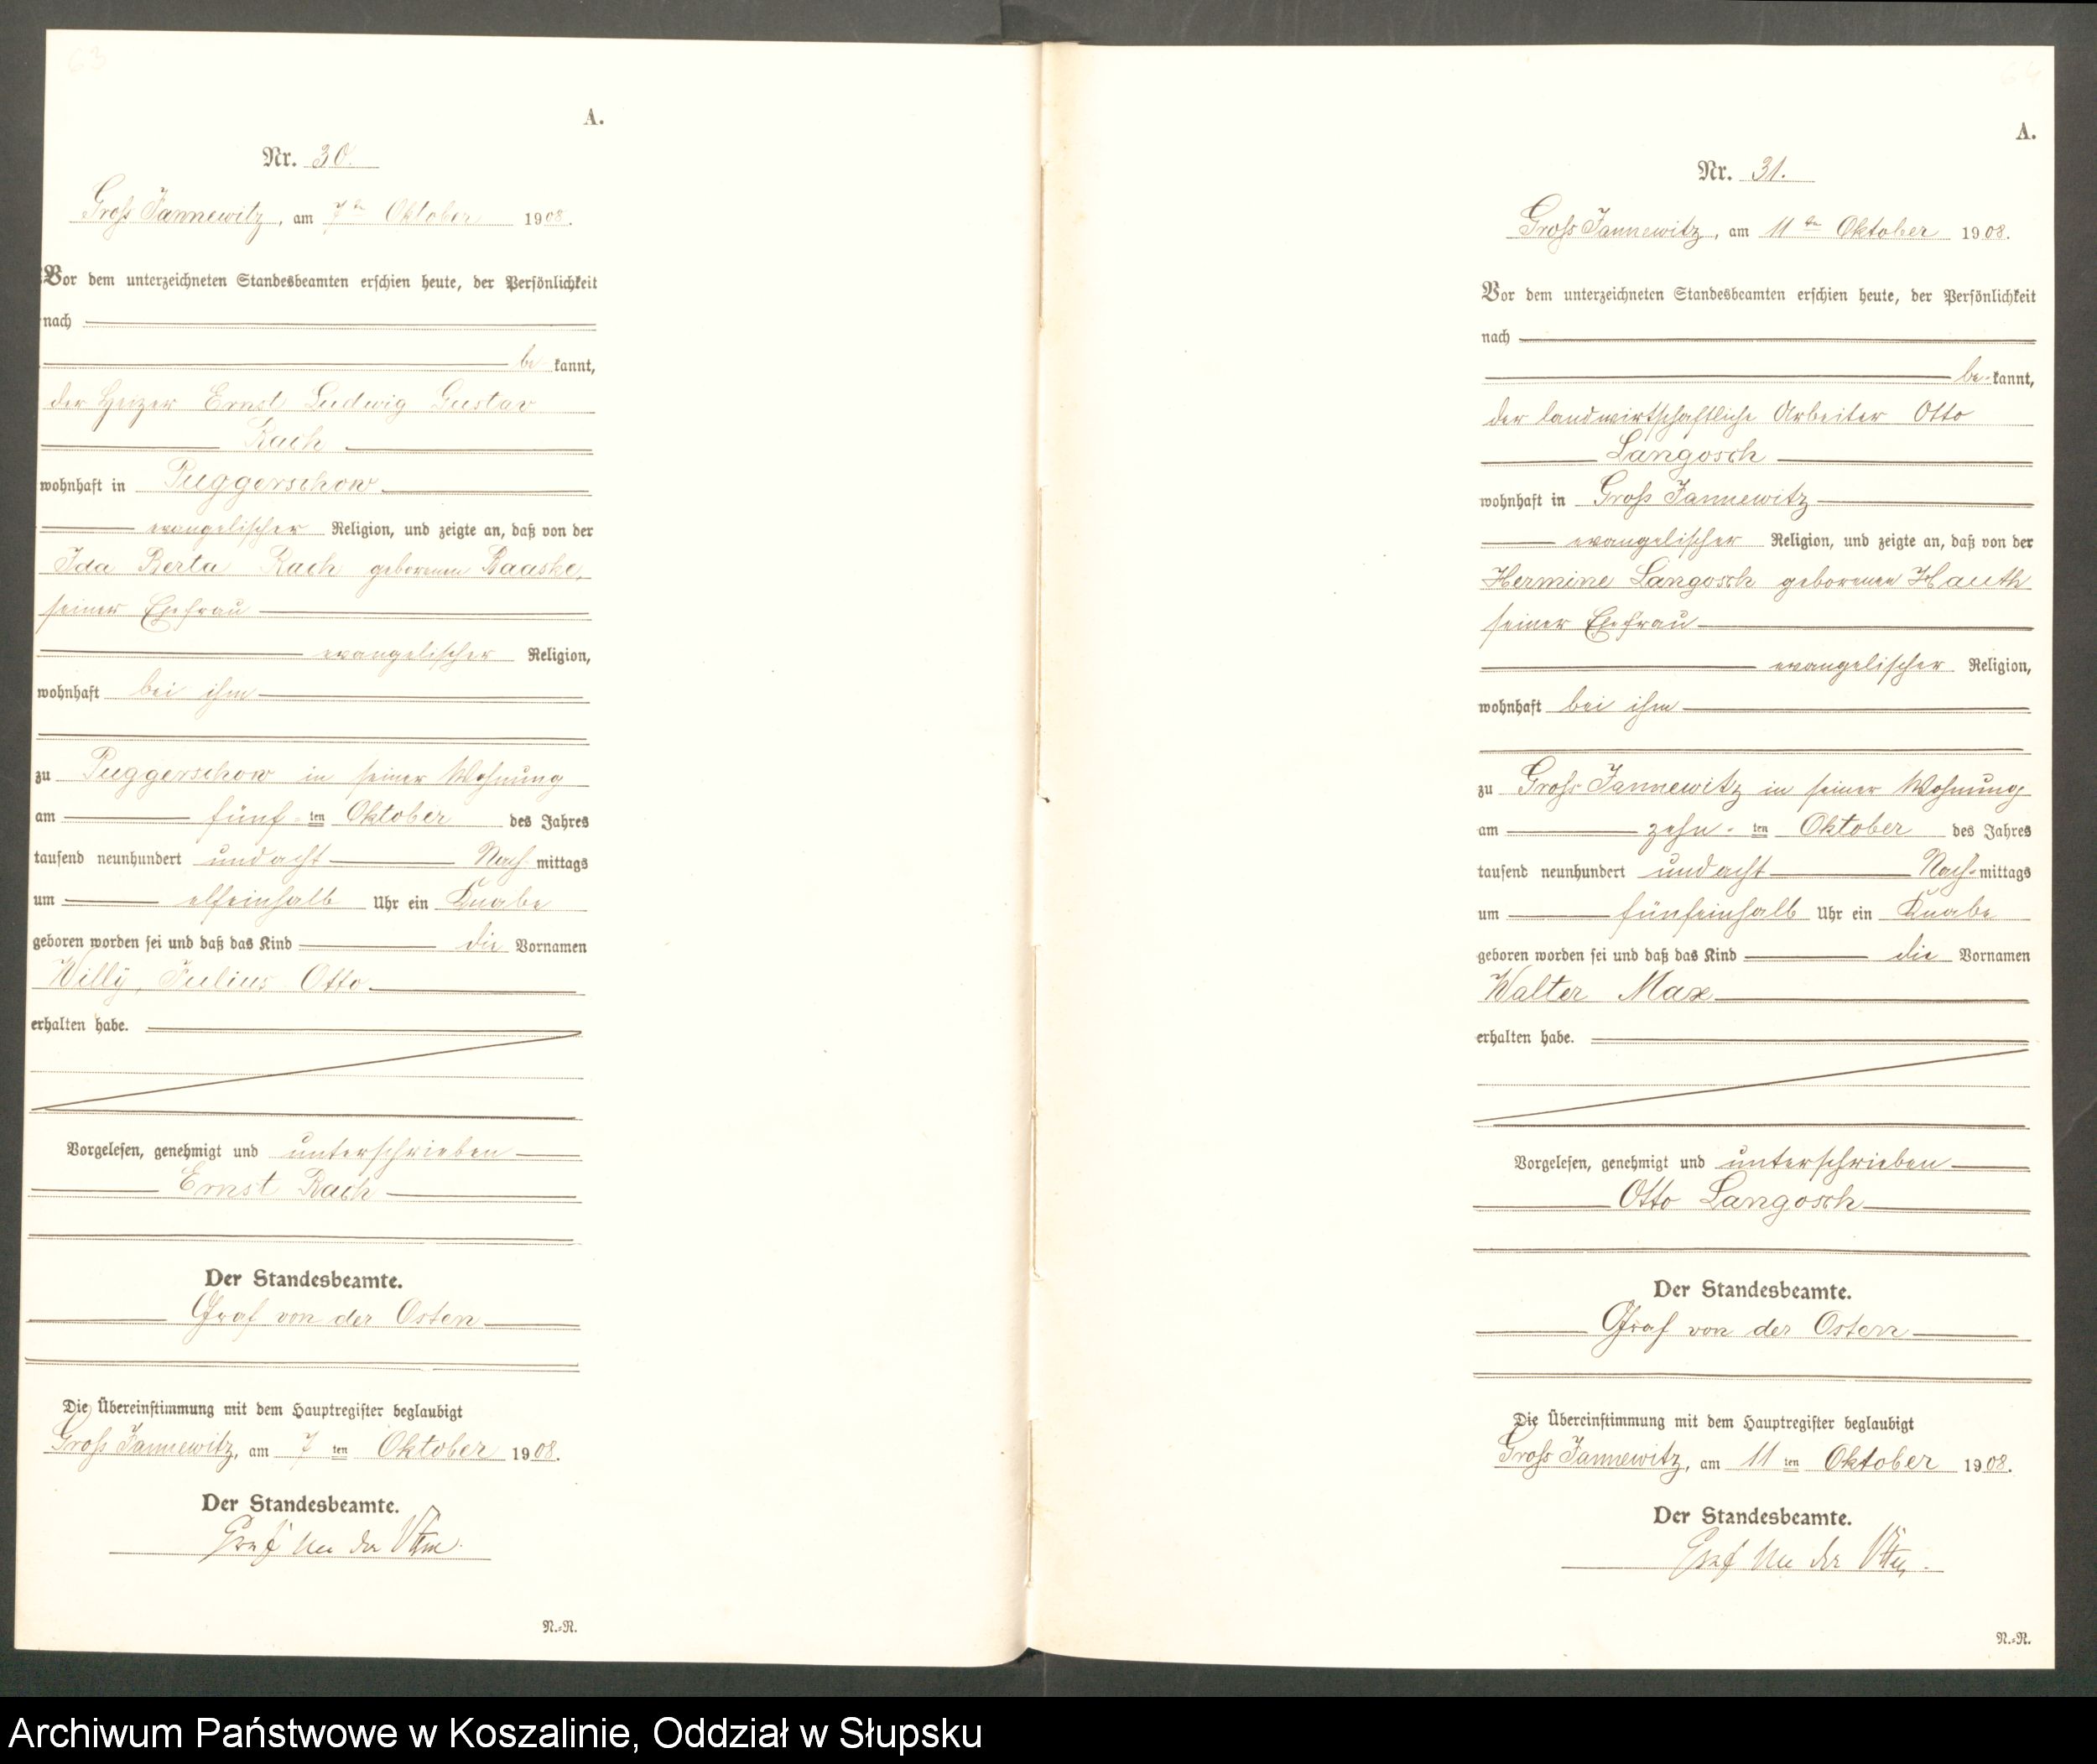 63
A.
Nr. 30.
Gross Jannewitz, am 7ten Oktober 1908.
Vor dem unterzeichneten Standesbeamten erschien heute, der Persönlichkeit
nach
be kannt,
der Heizer Ernst Ludwig Gustav
Rach
wohnhaft in Puggerschow
evangelischer Religion, und zeigte an, daß von der
Ida Berta Rach geborenen Baaske,
seiner Ehefrau
evangelischer Religion,
wohnhaft bei ihm
zu Puggerschow in seiner Wohnung
am fünf ten Oktober des Jahres
tausend neunhundert und acht Nach mittags
um elfeinhalb Uhr ein Knabe
geboren worden sei und daß das Kind die Vornamen
Willy, Julius Otto
erhalten habe.
Vorgelesen, genehmigt und unterschrieben
Ernst Rach
Der Standesbeamte.
Graf von der Osten
Die Übereinstimmung mit dem Hauptregister beglaubigt
Gross Jannewitz, am 7 ten Oktober 1908.
Der Standesbeamte.
Graf von der Osten.
N.=R.
64
A.
Nr. 31.
Gross Jannewitz, am 11ten Oktober 1908.
Vor dem unterzeichneten Standesbeamten erschien heute, der Persönlichkeit
nach
be=kannt,
der landwirtschaftliche Arbeiter Otto
Langosch
wohnhaft in Gross Jannewitz
evangelischer Religion, und zeigte an, daß von der
Hermine Langosch geborenen Hauth
seiner Ehefrau
evangelischer Religion,
wohnhaft bei ihm
zu Gross Jannewitz in seiner Wohnung
am zehn= ten Oktober des Jahres
tausend neunhundert und acht Nach=mittags
um fünfeinhalb Uhr ein Knabe
geboren worden sei und daß das Kind die Vornamen
Walter Max
erhalten habe.
Vorgelesen, genehmigt und unterschrieben
Otto Langosch
Der Standesbeamte.
Graf von der Osten
Die Übereinstimmung mit dem Hauptregister beglaubigt
Gross Jannewitz, am 11 ten Oktober 1908.
Der Standesbeamte.
Graf von der Osten.
N.=R.
Archiwum Państwowe w Koszalinie, Oddział w Słupsku